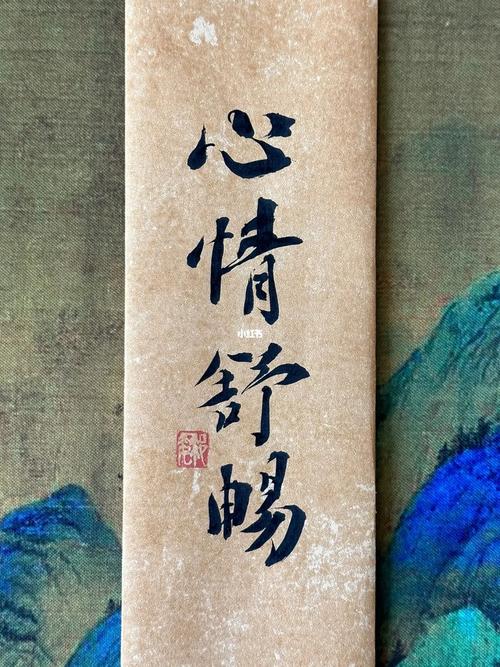 心情舒暢
小红书